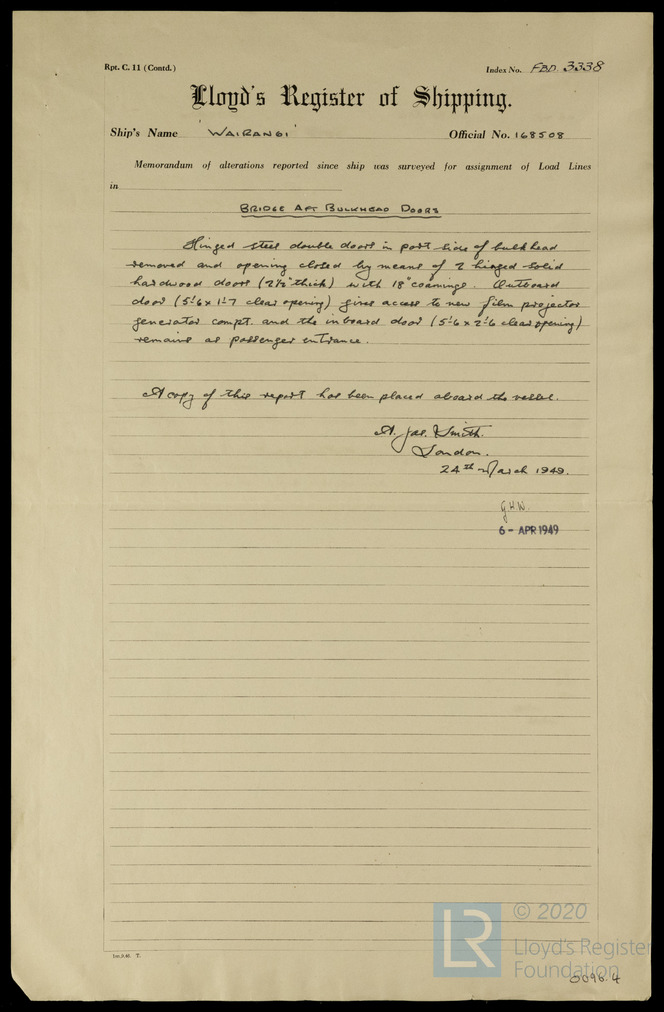 Rpt. C. 11 (Contd.)
Index No. FBD. 3338
Lloyd's Register of Shipping.
Ship's Name 'WAIRANGI'
Official No. 168508
Memorandum of alterations reported since ship was surveyed for assignment of Load Lines
in
BRIDGE AFT BULKHEAD DOORS
Hinged steel double doors in port side of bulkhead
removed and opening closed by means of 2 hinged solid
hardwood doors (2½" thick) with 18" coamings. Outboard
door (5'-6 x 1'-7 clear opening) gives access to new film projector
generator compt. and the inboard door (5'-6 x 2'-6 clear opening)
remains as passenger entrance.
A copy of this report has been placed aboard the vessel.
A. Jas. Smith.
London.
24th March 1949.
G.H.W.
6 - APR 1949
© 2020
LR
Lloyd's Register
Foundation
0096.4